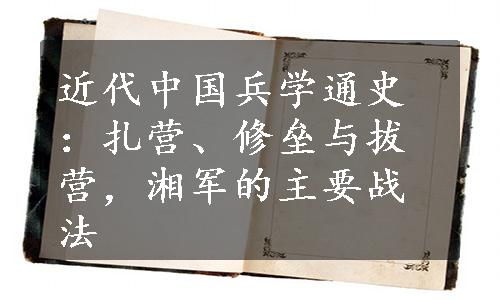 近代中国兵学通史
：扎营、修垒与拔
营，湘军的主要战
法